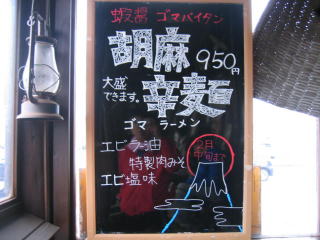 蝦醤 ゴマパイタン
胡麻 950円
大盛
できます。
辛麺
ゴマ ラーメン
エビラー油
特製肉みそ
エビ塩味
2月
中旬まで